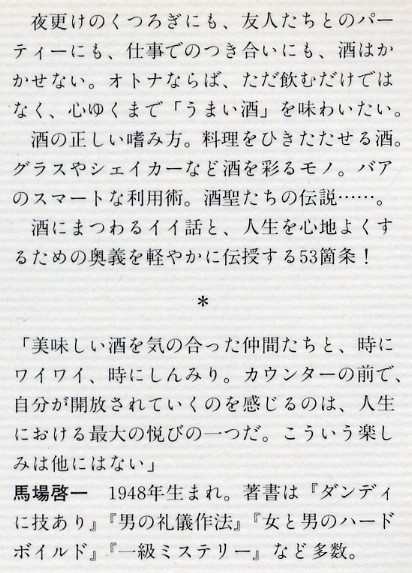 夜更けのくつろぎにも、友人たちとのパー
ティーにも、仕事でのつき合いにも、酒はか
かせない。オトナならば、ただ飲むだけでは
なく、心ゆくまで「うまい酒」を味わいたい。
　酒の正しい嗜み方。料理をひきたたせる酒。
グラスやシェイカーなど酒を彩るモノ。バア
のスマートな利用術。酒聖たちの伝説……。
　酒にまつわるイイ話と、人生を心地よくす
るための奥義を軽やかに伝授する53箇条！
＊
「美味しい酒を気の合った仲間たちと、時に
ワイワイ、時にしんみり。カウンターの前で、
自分が開放されていくのを感じるのは、人生
における最大の悦びの一つだ。こういう楽し
みは他にはない」
馬場啓一　1948年生まれ。著書は『ダンディ
に技あり』『男の礼儀作法』『女と男のハード
ボイルド』『一級ミステリー』など多数。